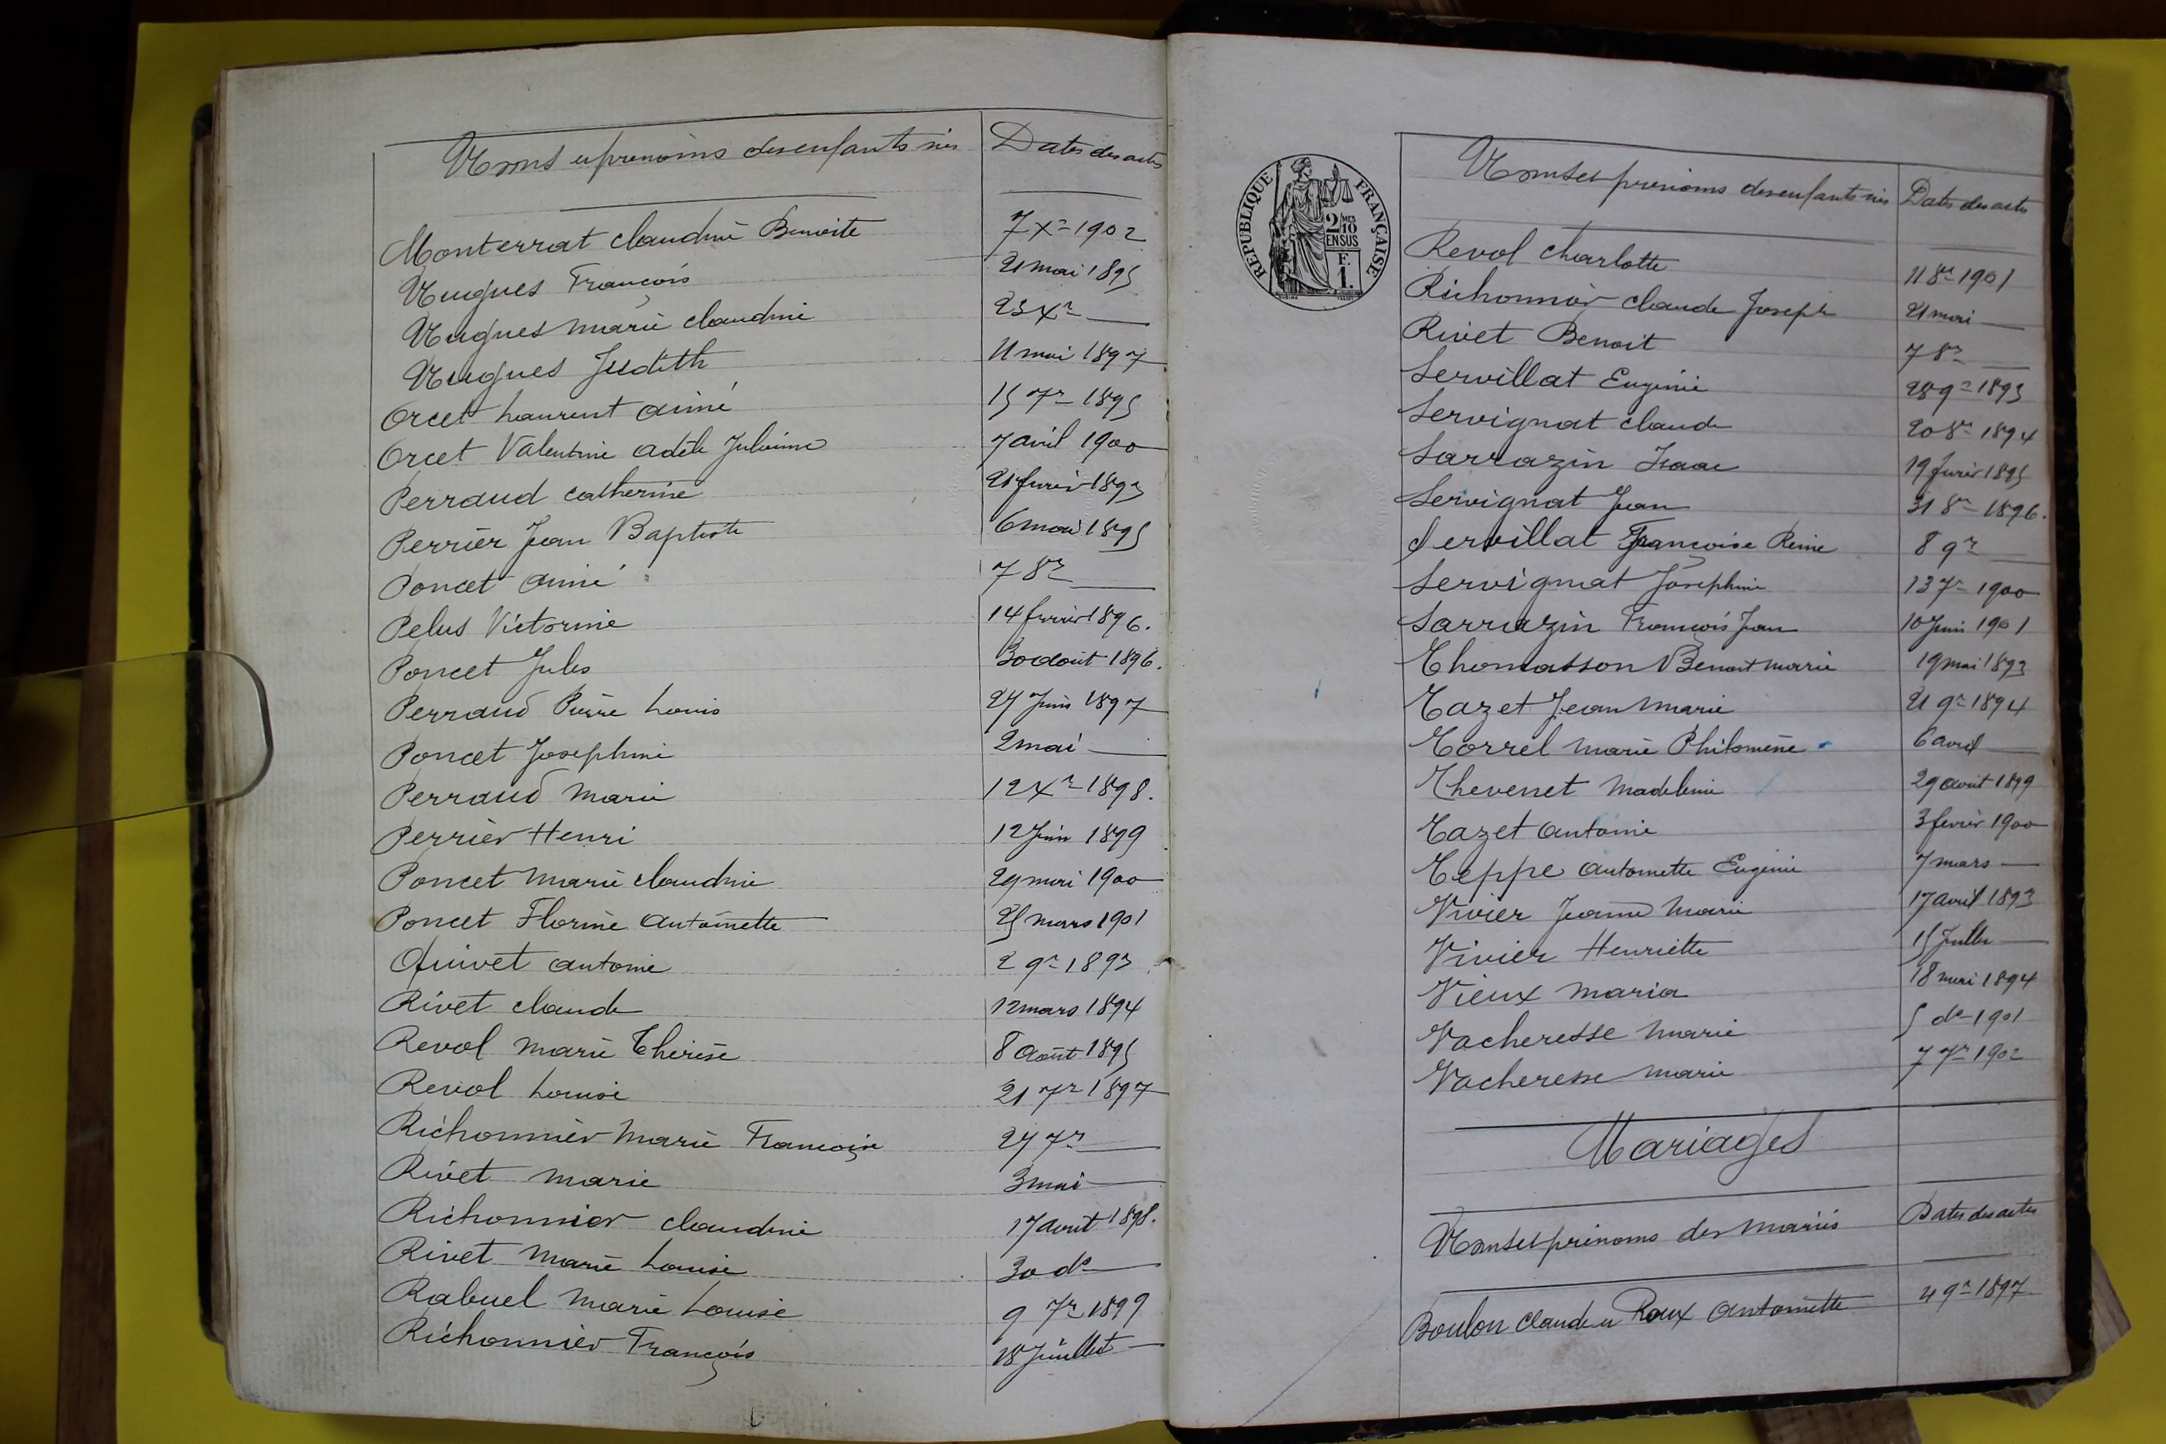 Noms et prénoms des enfants nés Dates des actes
Monterrat Claudine Benoite 7 Xre 1902
Nugues François 21 mai 1895
Nugues Marie Claudine 23 Xre —
Nugues Judith 11 mai 1897
Orcet Laurent Aimé 15 7re 1895
Orcet Valentine Adèle Julienne 7 avril 1900
Perraud Catherine 21 février 1893
Perrier Jean Baptiste 6 mai 1895
Poncet Aimé 7 8re —
Pelus Victorine 14 février 1896.
Poncet Jules 30 août 1896.
Perraud Pierre Louis 27 Juin 1897
Poncet Josephine 2 mai —
Perraud Marie 12 Xre 1898.
Perrier Henri 12 Juin 1899
Poncet Marie Claudine 29 mai 1900
Poncet Florine Antoinette 25 mars 1901
Quivet Antoine 2 9re 1893
Rivet Claude 12 mars 1894
Revol Marie Thérèse 8 Août 1895
Revol Louise 21 7re 1897
Richonnier Marie Françoise 27 7re —
Rivet Marie 3 mai —
Richonnier Claudine 17 avril 1898.
Rivet Marie Louise 30 do —
Rabuel Marie Louise 9 7re 1899
Richonnier François 18 Juillet —
RÉPUBLIQUE FRANÇAISE
2/10 MES
EN SUS
F.
1.
Noms et prénoms des enfants nés Dates des actes
Revol Charlotte 11 8re 1901
Richonnier Claude Joseph 21 mai —
Rivet Benoit 7 8re —
Servillat Eugénie 28 9re 1893
Servignat Claude 20 8re 1894
Sarrazin Isaac 19 février 1895
Servignat Jean 31 8re 1896.
Servillat Françoise Reine 8 9re —
Servignat Joséphine 13 7re 1900
Sarrazin François Jean 10 Juin 1901
Thomasson Benoit Marie 19 mai 1893
Tazet Jean Marie 21 9re 1894
Torrel Marie Philomène 6 avril —
Thevenet Madeleine 29 août 1899
Tazet Antoine 3 février 1900
Teppe Antoinette Eugénie 7 mars —
Vivier Jeanne Marie 17 avril 1893
Vivier Henriette 15 Juillet —
Vieux Maria 18 mai 1894
Vacheresse Marie 5 do 1901
Vacheresse Marie 7 7re 1902
Mariages
Noms et prénoms des mariés Dates des actes
Boulon Claude et Roux Antoinette 4 9re 1897